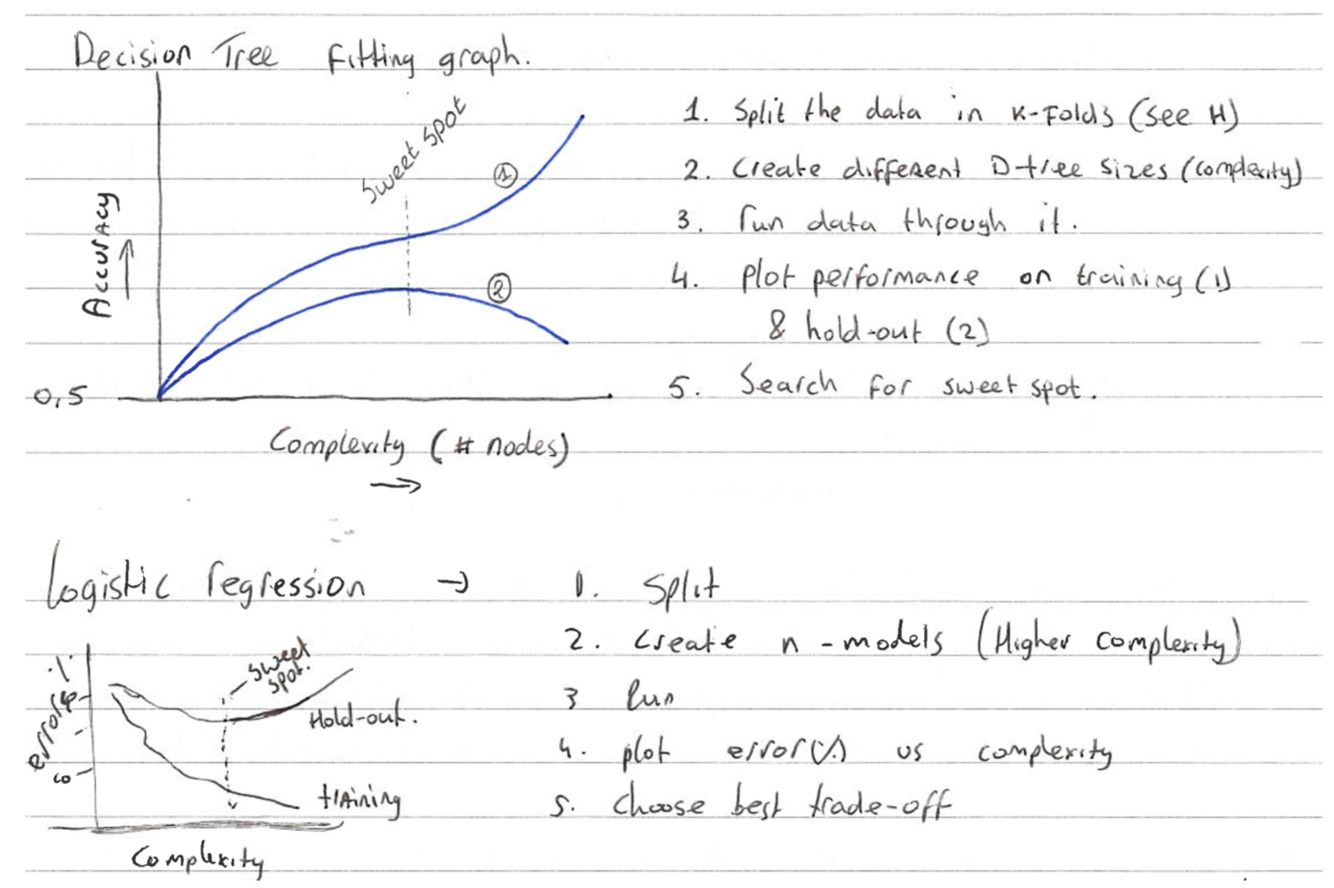 Decision Tree Fitting graph.
Sweet spot
1
2
Accuracy
0,5
Complexity (# nodes)
1. Split the data in K-Folds (see H)
2. Create different D-tree sizes (complexity)
3. run data through it.
4. plot performance on training (1)
& hold-out (2)
5. Search for sweet spot.
Logistic regression →
1. Split
2. create n-models (Higher complexity)
3 Run
4. plot error(%) vs complexity
5. choose best trade-off
%
error
sweet
spot.
Hold-out.
training
Complexity